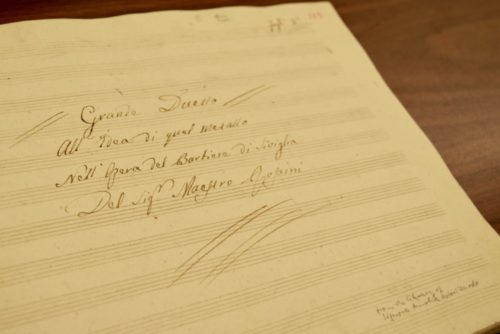 Grande Duetto
All' Idea di quel metallo
Nell' Opera del Barbiere di Siviglia
Del Sigr Maestro Rossini
from the library of